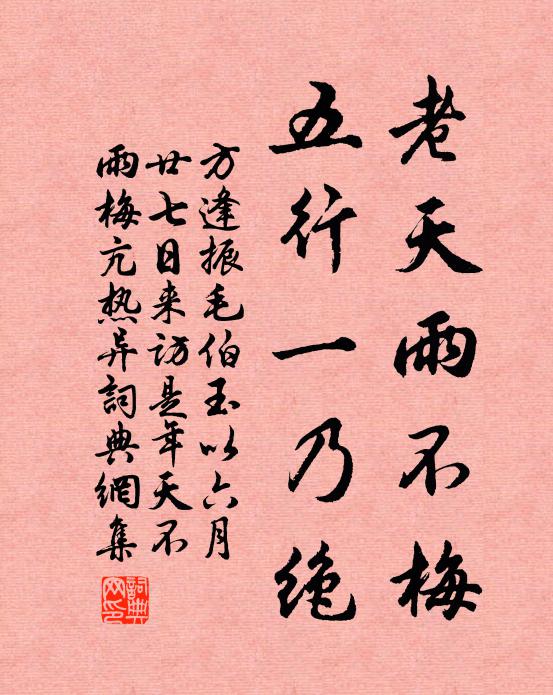 老天雨不梅
五行一乃绝
方逢振毛伯玉以六月
廿七日来访是年天不
雨梅亢热异詞典網集
詞典网印